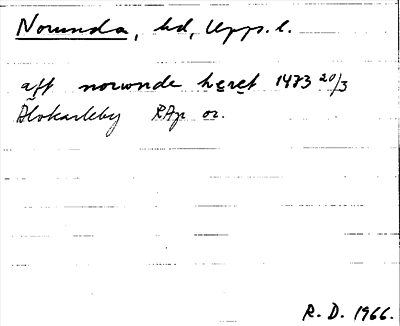 Norunda, hd, Upps. l.
aff norwnde heret 1473 20/3
Älvkarleby RAp or.
R. D. 1966.